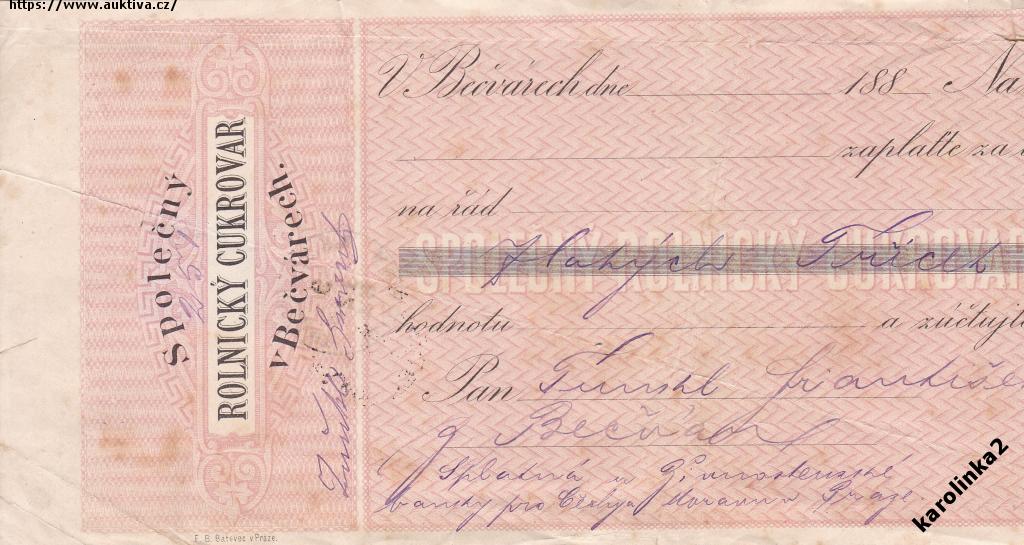 https://www.auktiva.cz/
Společný
ROLNICKÝ CUKROVAR
v Bečvárech.
V Bečvárech dne 188 Na
zaplaťte za
na řád
SPOLEČNÝ ROLNICKÝ CUKROVAR
Zlatých Třicet
hodnotu a zúčtujte
Pan František
Bečváry
Splatná u Živnostenské
banky pro Čechy a Moravu v Praze.
E. B. Batovec v Praze.
karolinka2